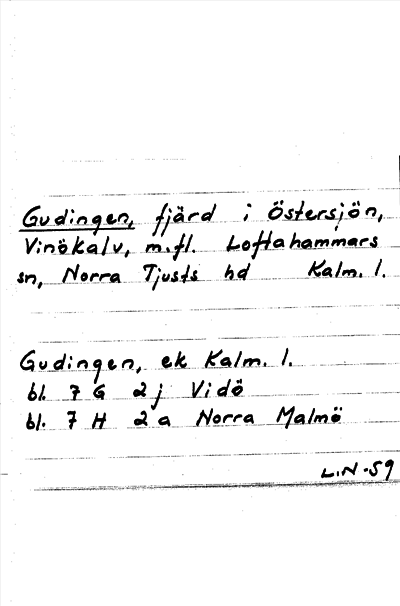 Gudingen, fjärd i Östersjön,
Vinökalv, m.fl. Loftahammars
sn, Norra Tjusts hd Kalm. l.
Gudingen, ek Kalm. l.
bl. 7 G 2 j Vidö
bl. 7 H 2 a Norra Malmö
L.N-59